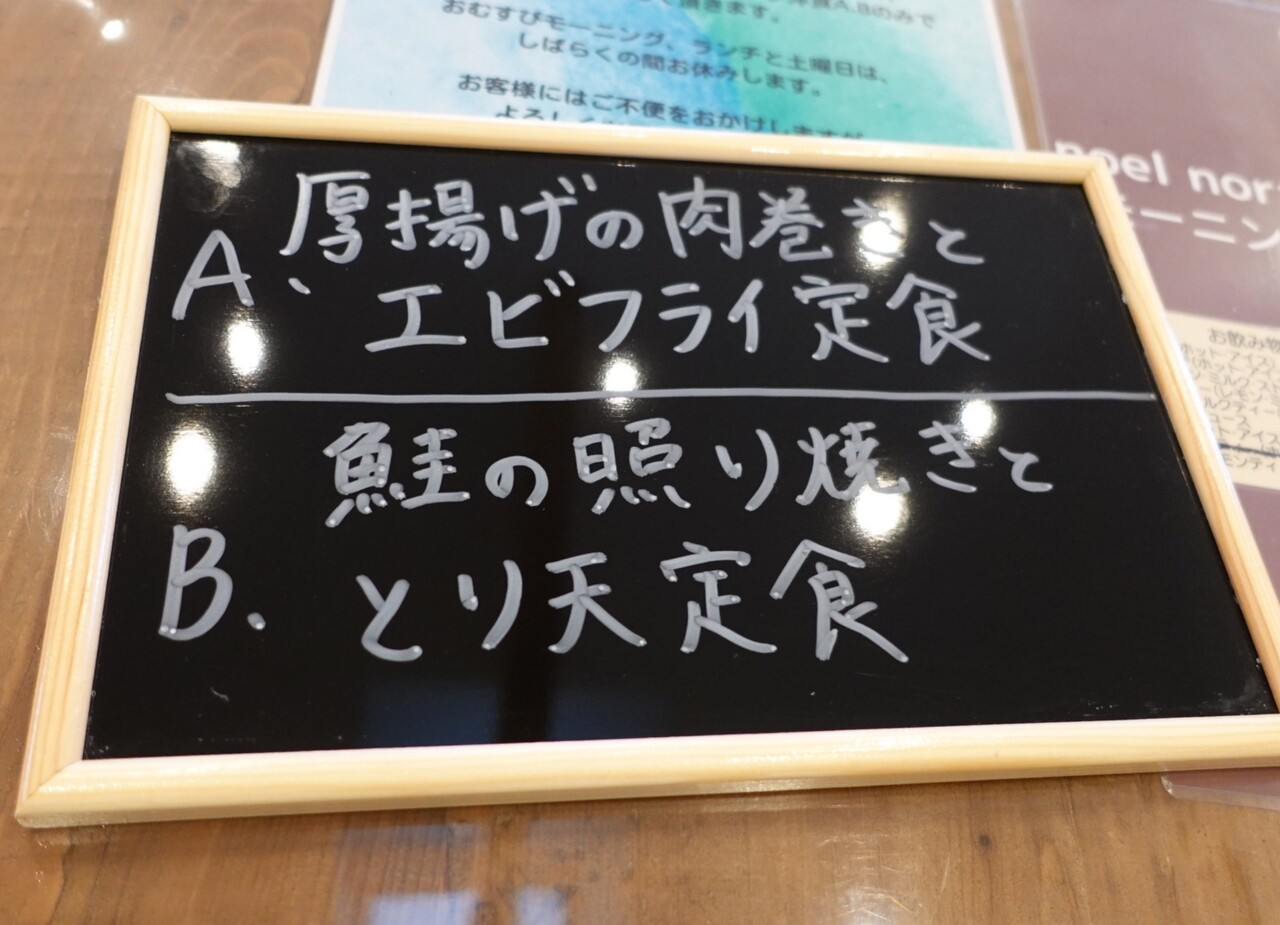 頂きます。
A.Bのみで
おむすびモーニング、ランチと土曜日は、
しばらくの間お休みします。
お客様にはご不便をおかけしますが
noel nor
モーニン
お飲み物
A、厚揚げの肉巻きと
エビフライ定食
B. 鮭の照り焼きと
とり天定食